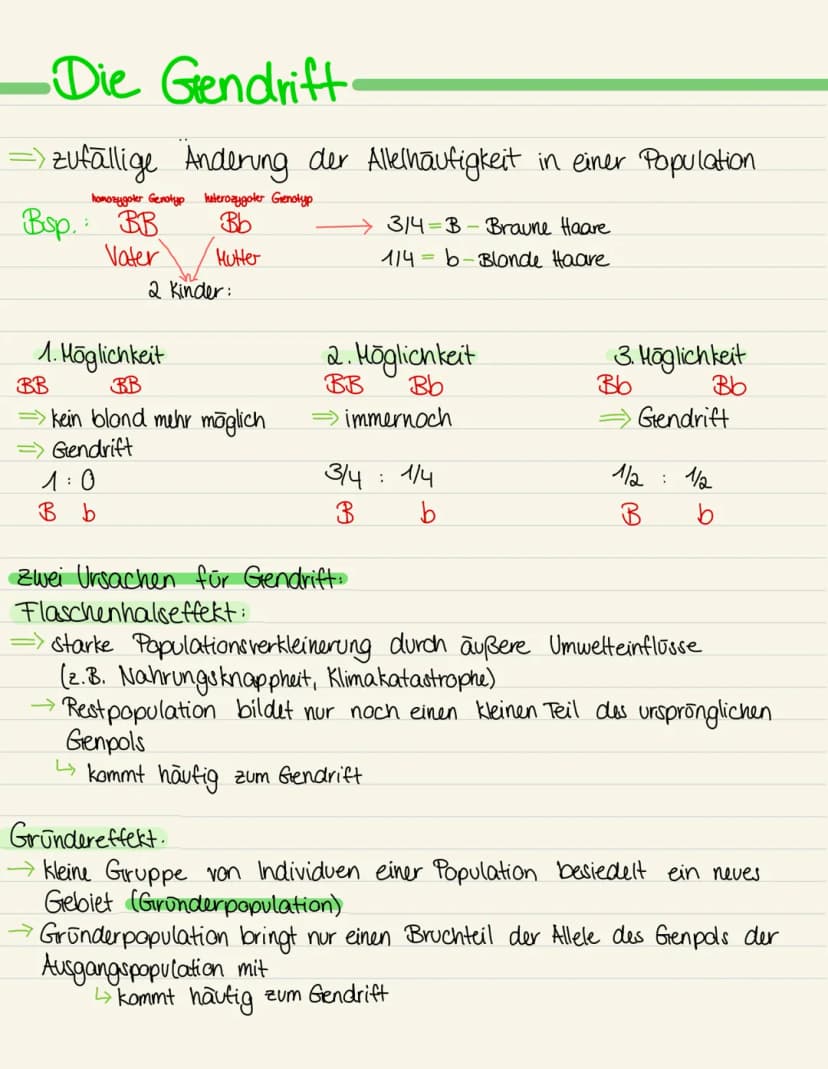 Die Gendrift
=> zufällige Änderung der Allelhäufigkeit in einer Population
homozygoter Genotyp heterozygoter Genotyp
Bsp.: BB Bb → 3/4 = B - Braune Haare
Vater Mutter 1/4 = b - Blonde Haare
2 Kinder:
1. Möglichkeit 2. Möglichkeit 3. Möglichkeit
BB BB BB Bb Bb Bb
=> kein blond mehr möglich => immernoch => Gendrift
=> Gendrift
1 : 0 3/4 : 1/4 1/2 : 1/2
B b B b B b
Zwei Ursachen für Gendrift:
Flaschenhalseffekt:
=> starke Populationsverkleinerung durch äußere Umwelteinflüsse
(z.B. Nahrungsknappheit, Klimakatastrophe)
→ Restpopulation bildet nur noch einen kleinen Teil des ursprünglichen
Genpols
↳ kommt häufig zum Gendrift
Gründereffekt.
→ kleine Gruppe von Individuen einer Population besiedelt ein neues
Gebiet (Gründerpopulation)
→ Gründerpopulation bringt nur einen Bruchteil der Allele des Genpols der
Ausgangspopulation mit
↳ kommt häufig zum Gendrift